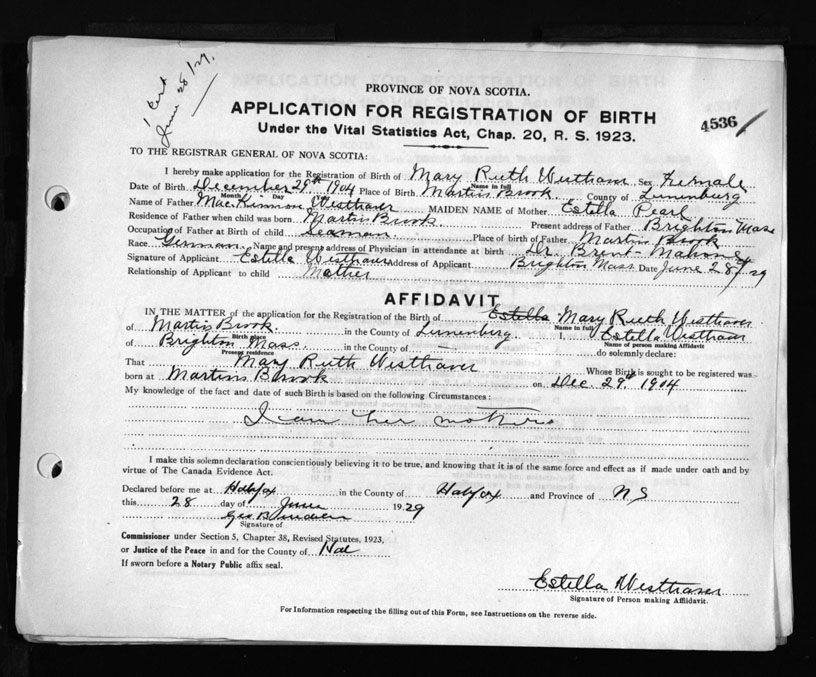 1 Cert
June 28/29.
PROVINCE OF NOVA SCOTIA.
APPLICATION FOR REGISTRATION OF BIRTH
4536
Under the Vital Statistics Act, Chap. 20, R. S. 1923.
TO THE REGISTRAR GENERAL OF NOVA SCOTIA:
I hereby make application for the Registration of Birth of Mary Ruth Westhaver Sex Female
Name in full
Date of Birth December 29th 1904 Place of Birth Martins Brook County of Lunenburg
Month Day
Name of Father MacKinnon Westhaver MAIDEN NAME of Mother Estella Pearl
Residence of Father when child was born Martins Brook Present address of Father Brighton Mass
Occupation of Father at Birth of child Seaman Place of birth of Father Martins Brook
Race German Name and present address of Physician in attendance at birth Dr. Mahone
Signature of Applicant Estella Westhaver Address of Applicant Brighton Mass. Date June 28/29
Relationship of Applicant to child Mother
AFFIDAVIT
IN THE MATTER of the application for the Registration of the Birth of Estella Mary Ruth Westhaver
Name in full
of Martins Brook in the County of Lunenburg I, Estella Westhaver
Birth place Name of person making Affidavit
of Brighton Mass in the County of — do solemnly declare:
Present residence
That Mary Ruth Westhaver Whose Birth is sought to be registered was
born at Martins Brook on Dec. 29th 1904
My knowledge of the fact and date of such Birth is based on the following Circumstances:
I am her mother
I make this solemn declaration conscientiously believing it to be true, and knowing that it is of the same force and effect as if made under oath and by
virtue of The Canada Evidence Act.
Declared before me at Halifax in the County of Halifax and Province of N S
this 28 day of June 1929
Geo. B.
Signature of
Commissioner under Section 5, Chapter 38, Revised Statutes, 1923,
or Justice of the Peace in and for the County of Hal
If sworn before a Notary Public affix seal.
Estella Westhaver
Signature of Person making Affidavit.
For Information respecting the filling out of this Form, see Instructions on the reverse side.